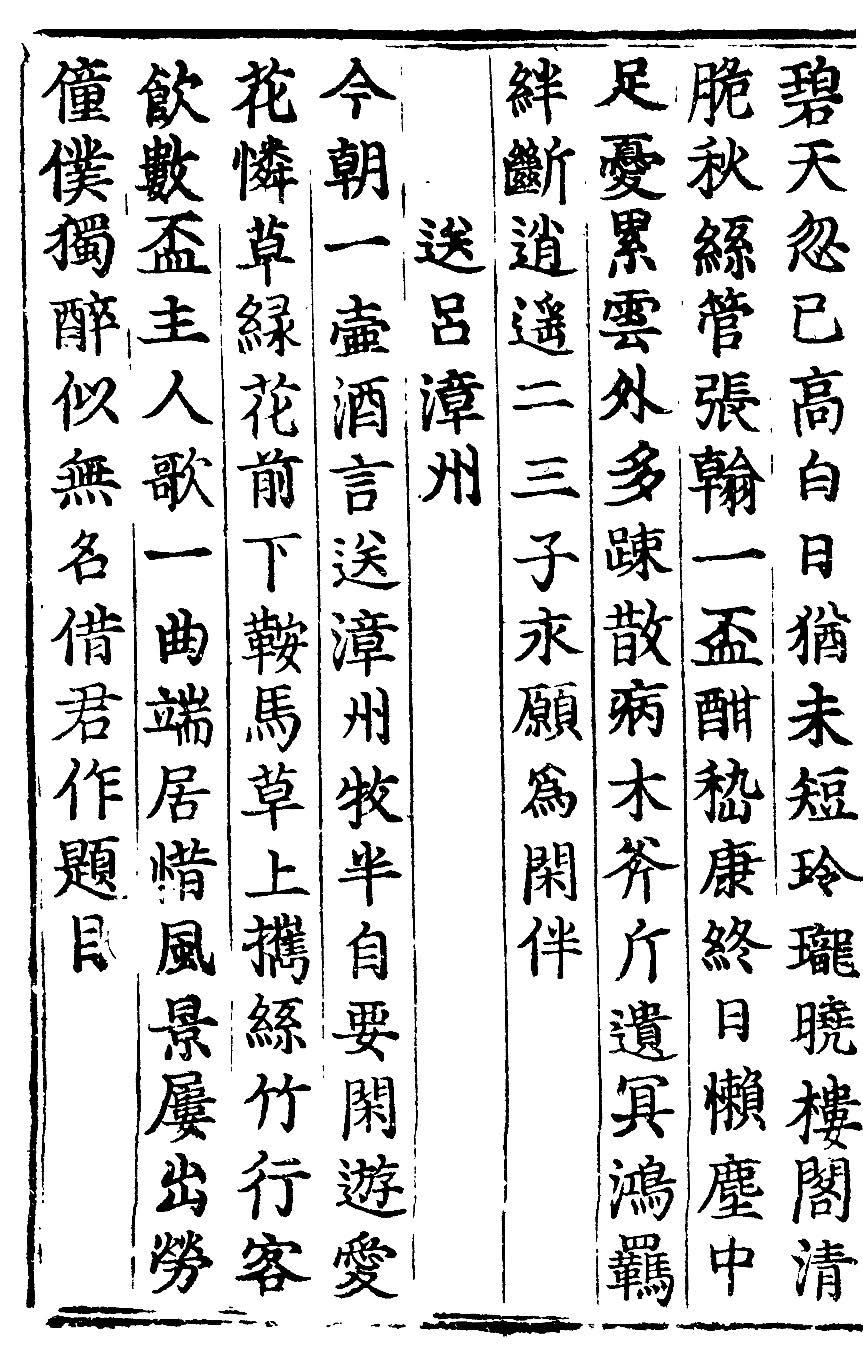 碧天忽已高白日猶未短玲瓏曉樓閣清
脆秋絲管張翰一盃酣嵇康終日懶塵中
足憂累雲外多踈散病木斧斤遺冥鴻羈
絆斷逍遥二三子永願爲閑伴
送呂漳州
今朝一壷酒言送漳州牧半自要閑遊愛
花憐草緑花前下鞍馬草上攜絲竹行客
飲數盃主人歌一曲端居惜風景屢出勞
僮僕獨醉似無名借君作題目